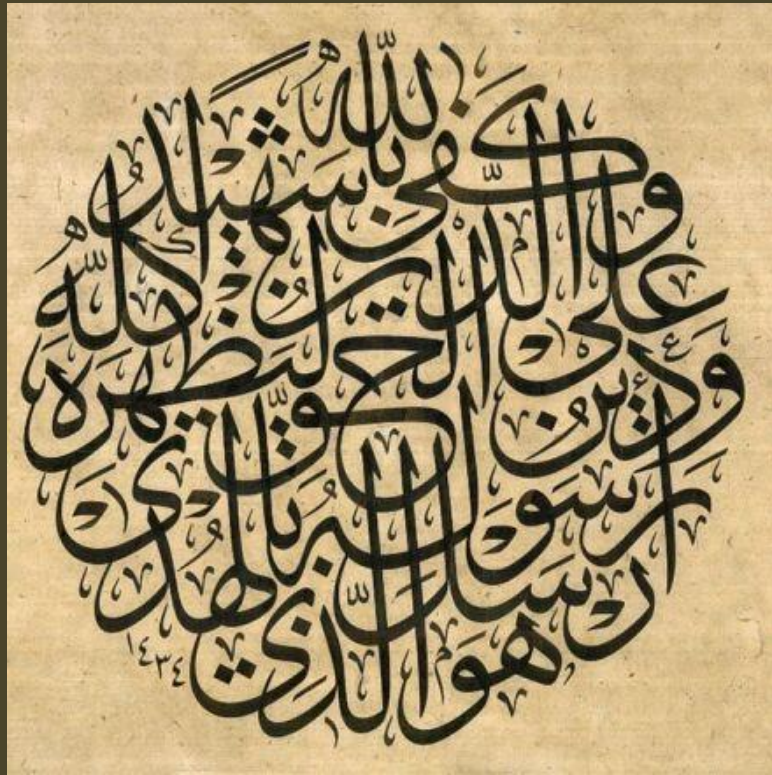 هُوَ الَّذِي أَرْسَلَ رَسُولَهُ بِالْهُدَى
وَدِينِ الْحَقِّ لِيُظْهِرَهُ
عَلَى الدِّينِ كُلِّهِ
وَكَفَى بِاللَّهِ شَهِيدًا
١٤٣٤